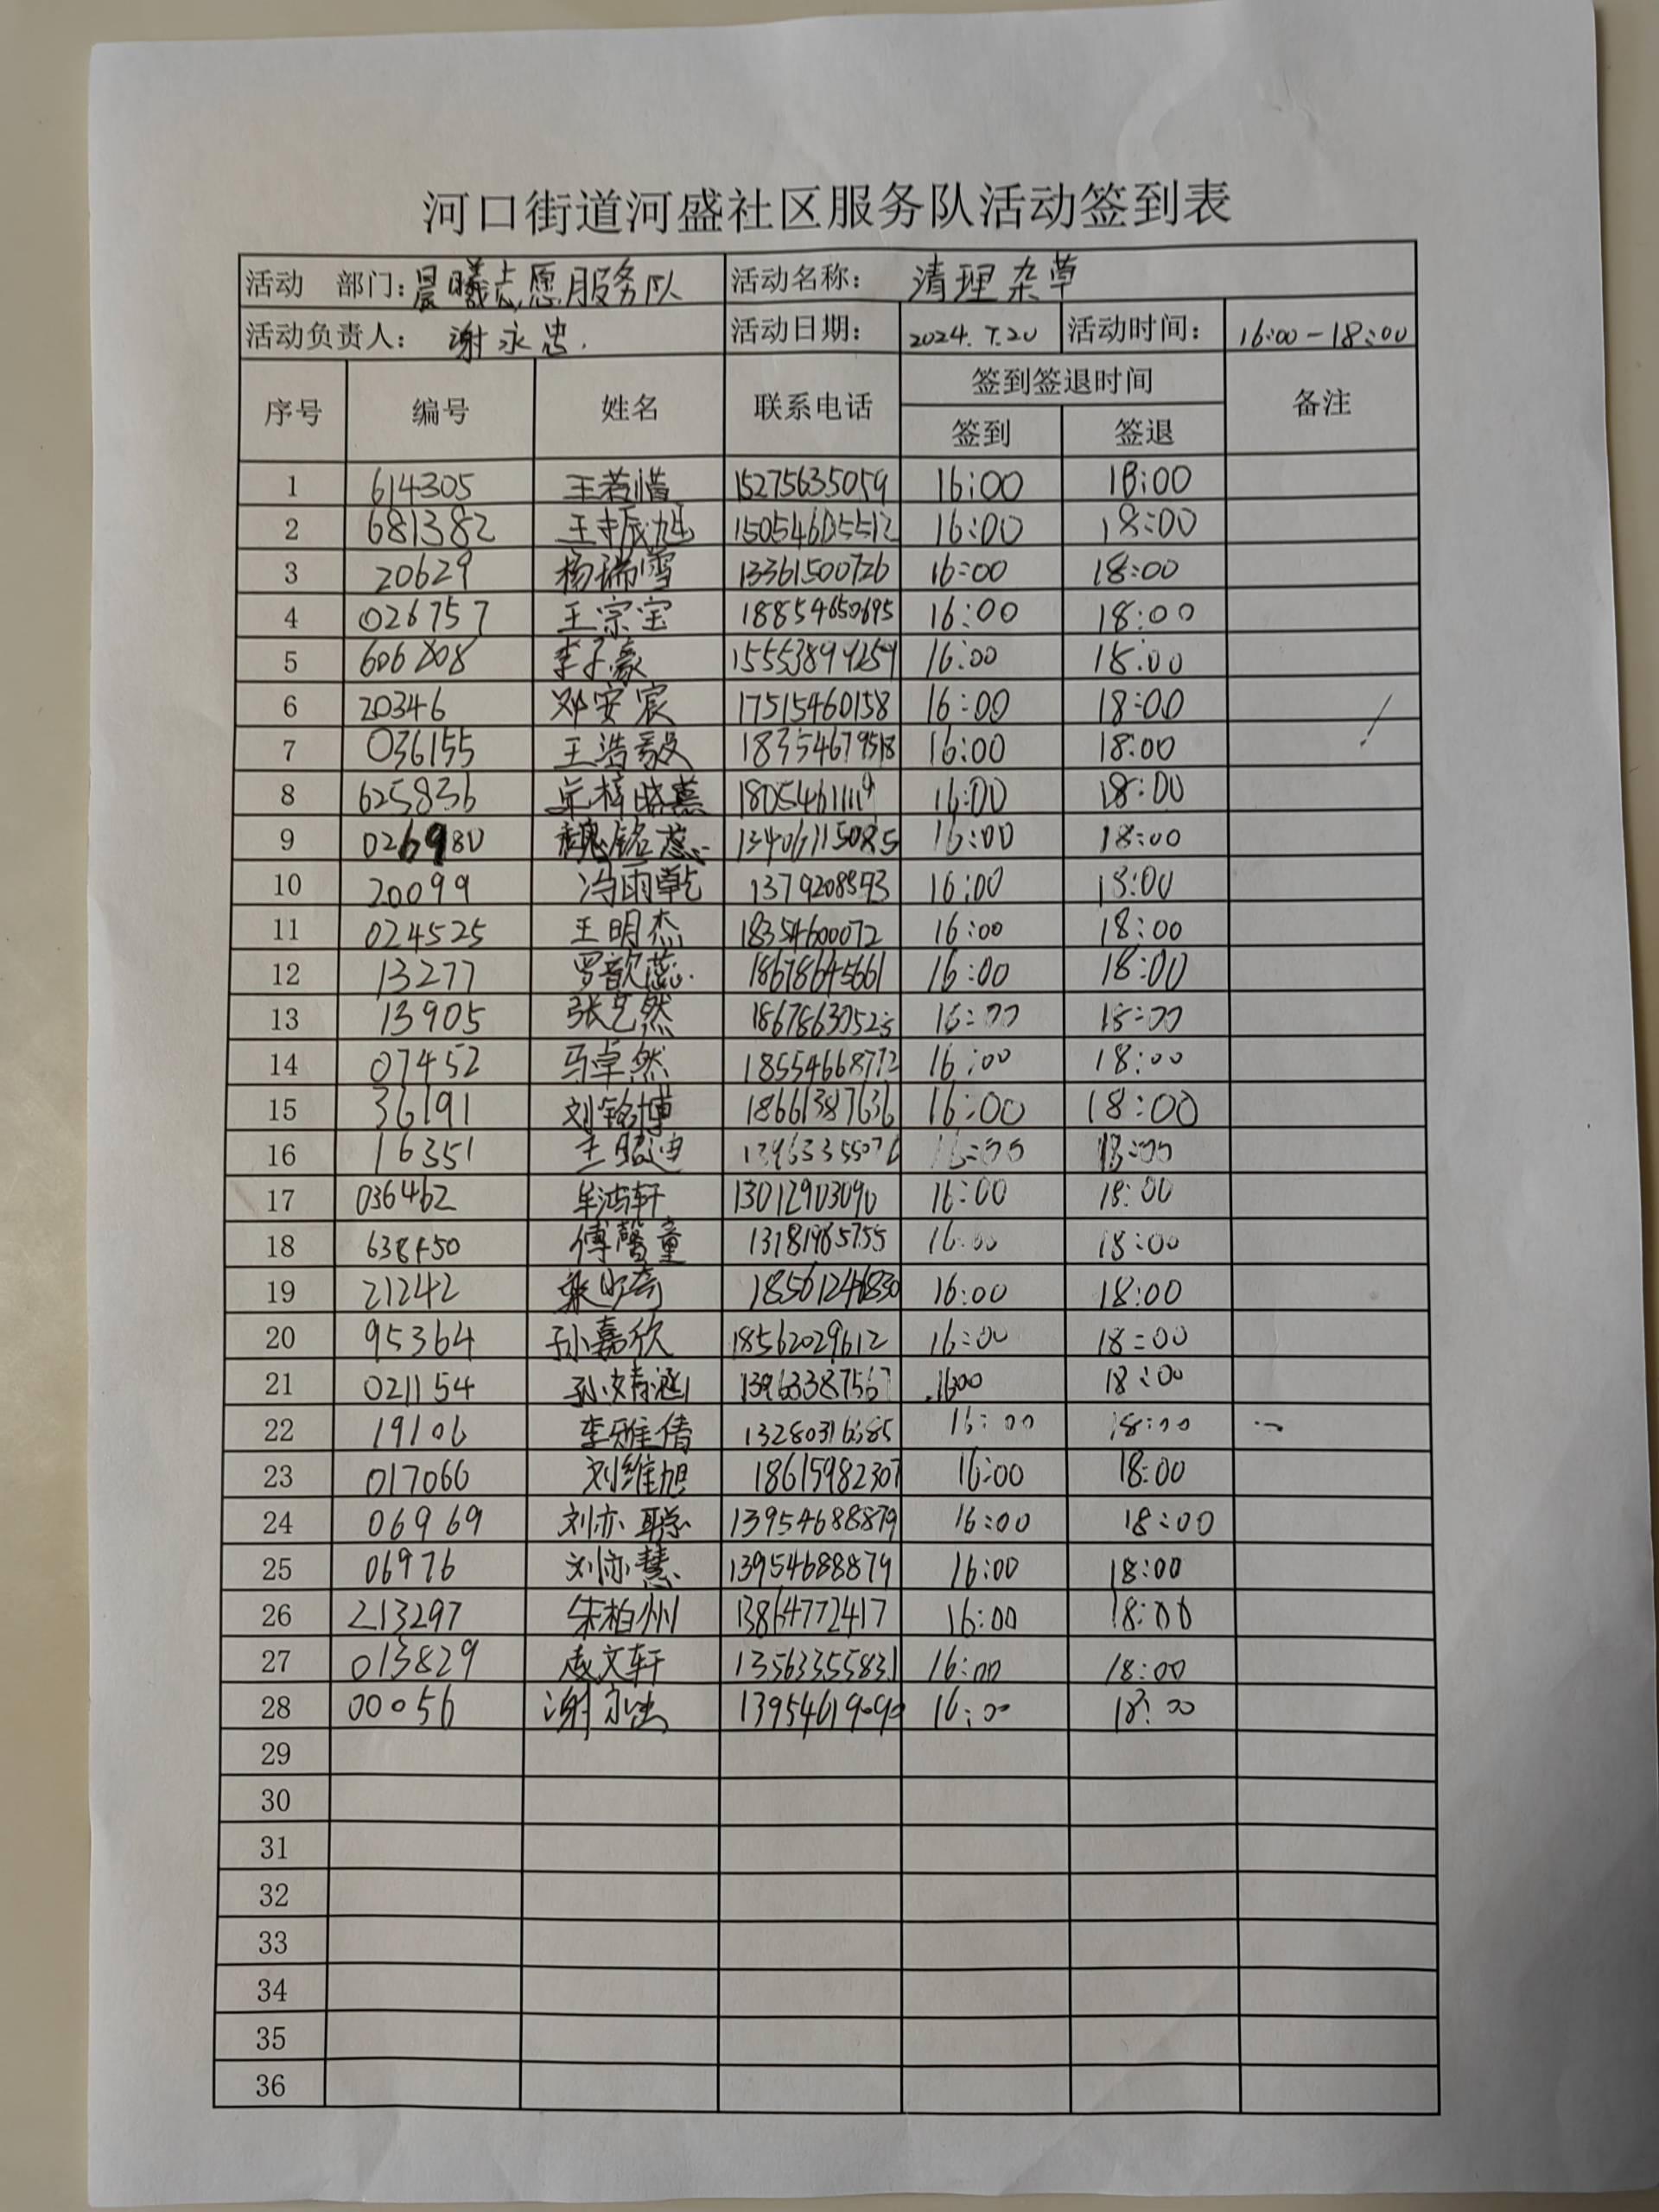 河口街道河盛社区服务队活动签到表
活动 部门: 晨曦志愿服务队 活动名称: 清理杂草
活动负责人: 谢永忠. 活动日期: 2024.7.20 活动时间: 16:00-18:00
序号 编号 姓名 联系电话 签到签退时间 备注
签到 签退
1 614305 王若惜 15275635059 16:00 18:00
2 681382 15054605512 16:00 18:00
3 20629 杨瑞雪 13361500726 16:00 18:00
4 026757 王宗宝 18854650695 16:00 18:00
5 606208 李子豪 16:00 18:00
6 20346 邓安宸 17515460158 16:00 18:00
7 036155 王浩毅 18354679518 16:00 18:00
8 625836 16:00 18:00
9 026980 魏铭蕊 13406115085 16:00 18:00
10 20099 冯雨乾 16:00 18:00
11 024525 王明杰 18354600072 16:00 18:00
12 13277 罗歆蕊 18678645661 16:00 18:00
13 13905 张艺然 18678630525 16:00 18:00
14 07452 马卓然 18554668772 16:00 18:00
15 36191 刘铭博 18661387636 16:00 18:00
16 16351 王昭迪 13963355076 16:00 18:00
17 036462 牟鸿轩 13012903090 16:00 18:00
18 638450 傅馨童 13181985755 16:00 18:00
19 21242 18561246830 16:00 18:00
20 95364 孙嘉欣 18562029612 16:00 18:00
21 021154 孙婧涵 13963387567 1600 18:00
22 19106 李雅倩 13280316685 16:00 18:00
23 017066 刘维旭 18615982307 16:00 18:00
24 06969 刘亦聪 13954688879 16:00 18:00
25 06976 刘亦慧 13954688879 16:00 18:00
26 213297 朱柏州 13864772417 16:00 18:00
27 013829 13563355831 16:00 18:00
28 00056 谢永忠 13954619090 16:00 18:00
29
30
31
32
33
34
35
36